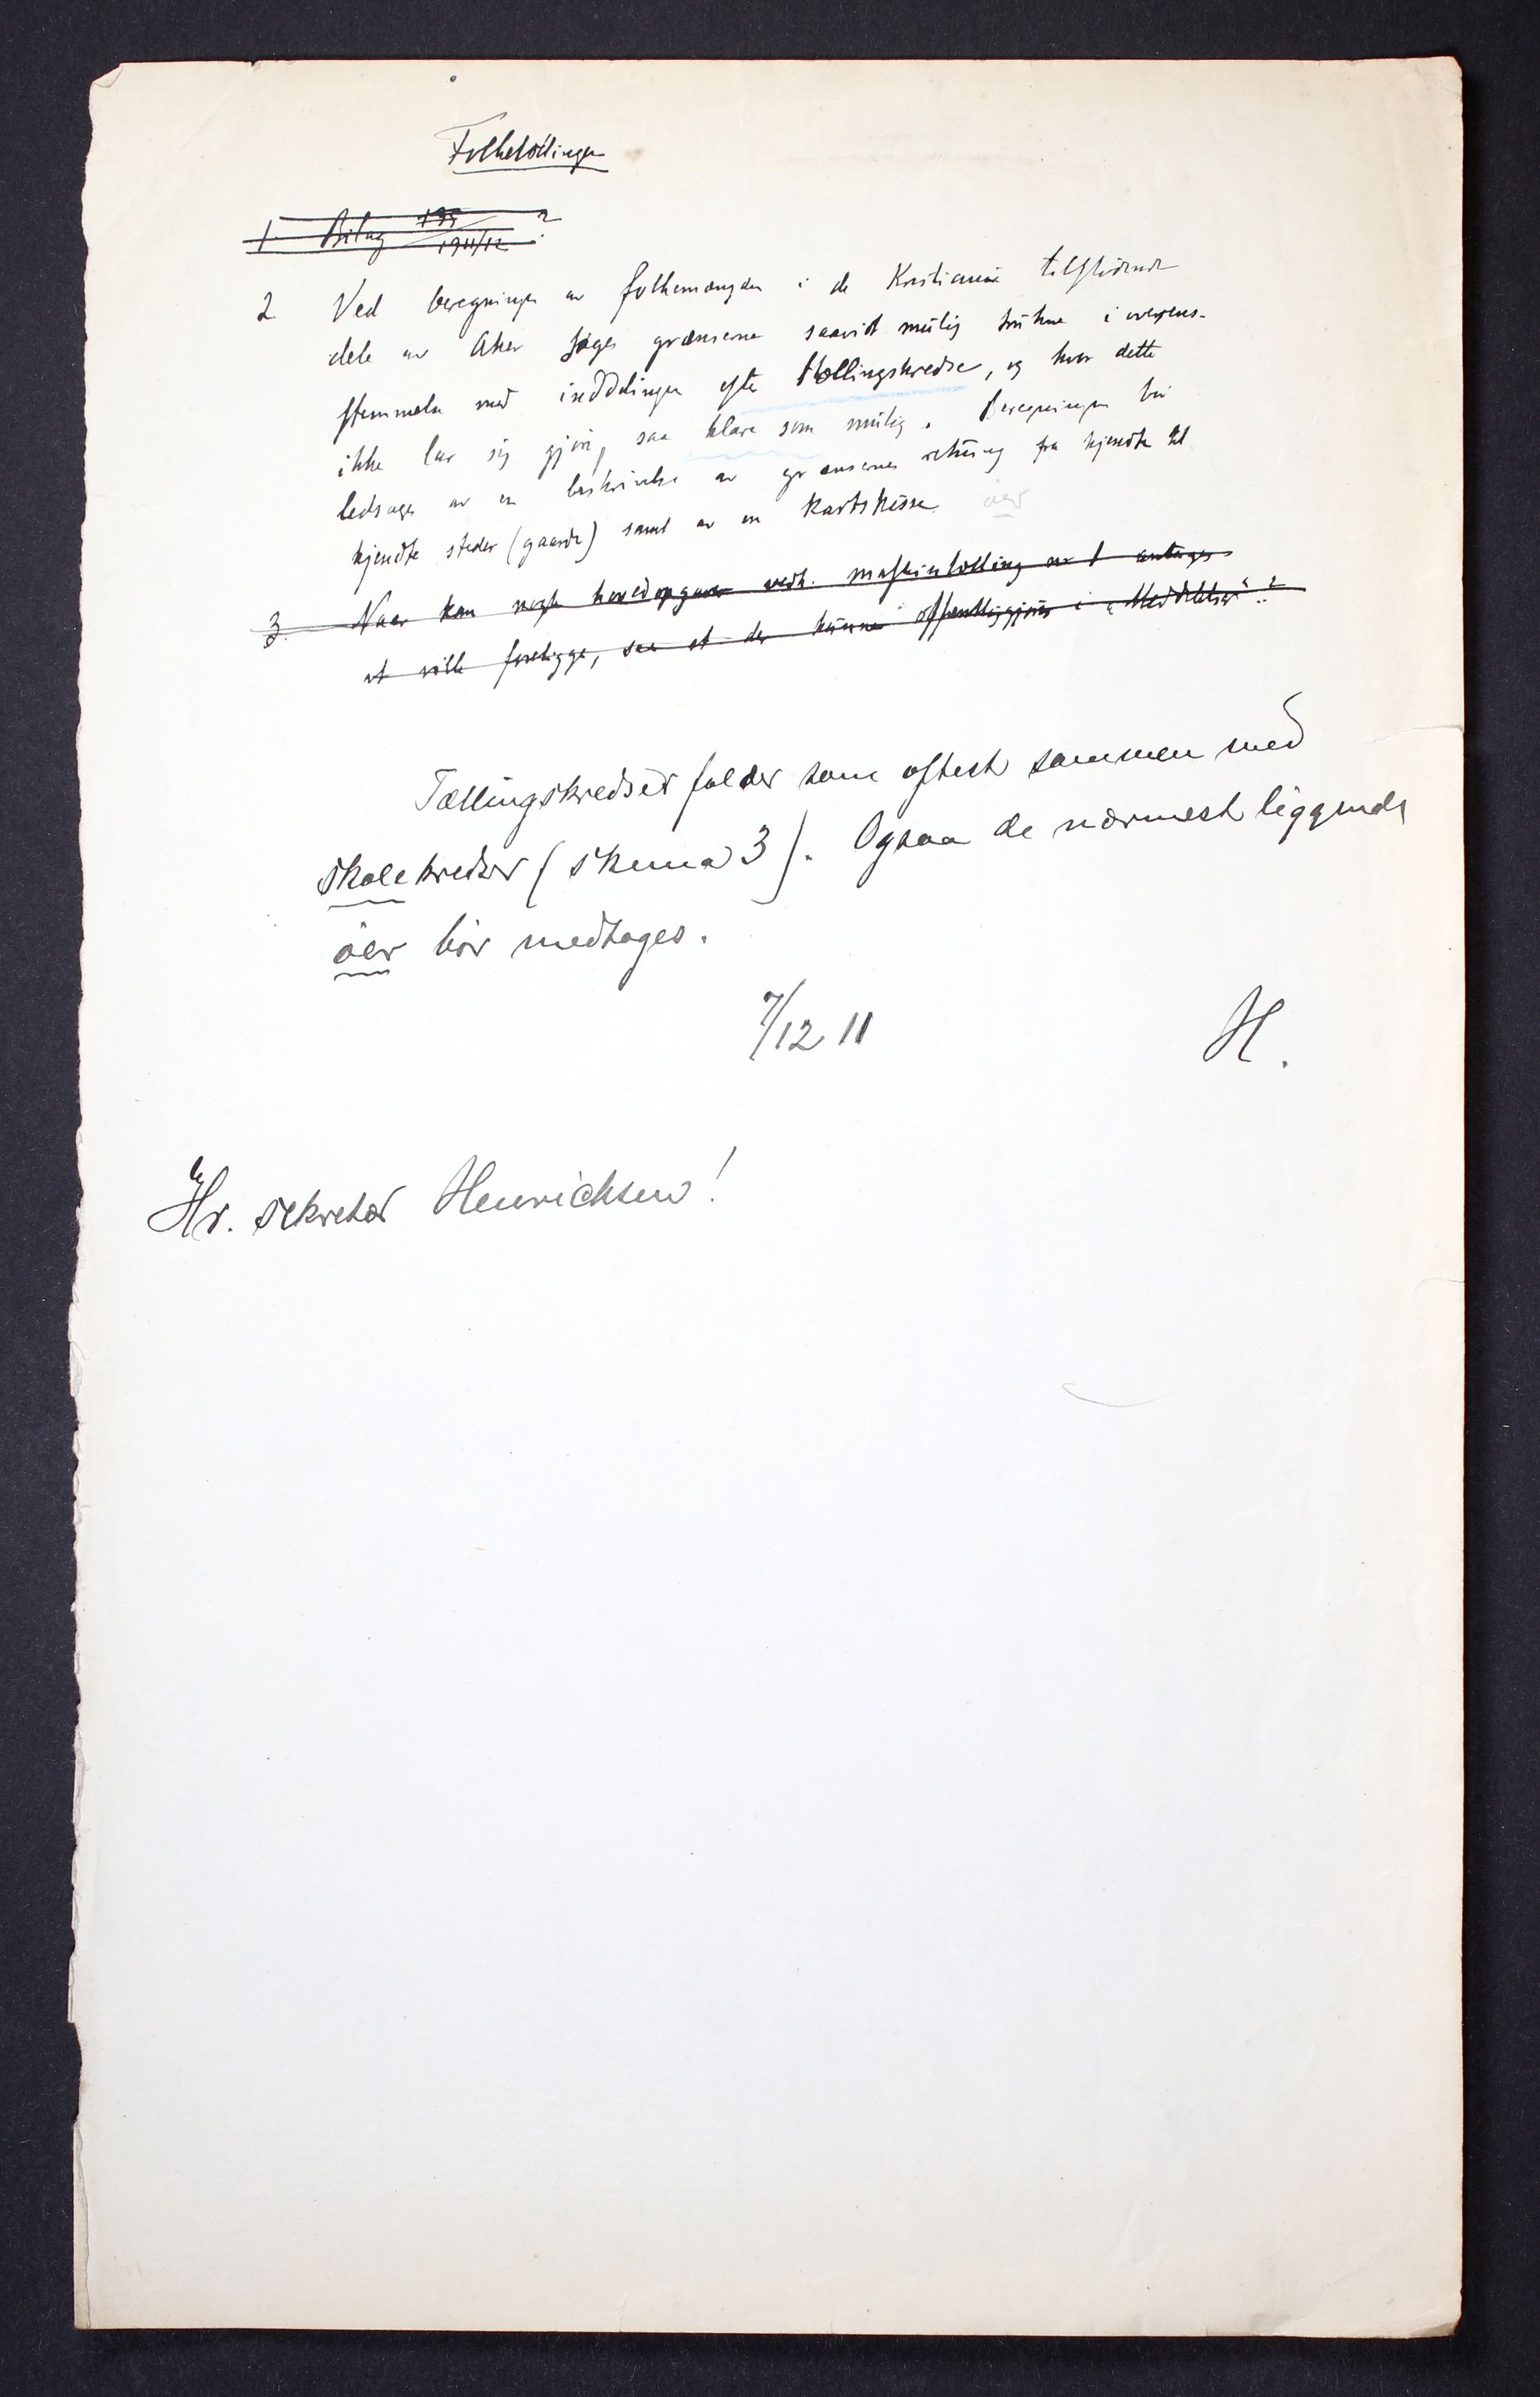 Folketællingen
1. Bilag 195/1911/12 ?
2 Ved beregningen av folkemængden i de Kristiania tilstødende
dele av Aker søges grænserne saavidt mulig trukne i overens-
stemmelse med inddelingen efter tællingskredse, og hvor dette
ikke lar sig gjøre, saa klare som mulig. Beregningen bør
ledsages av en beskrivelse av grænsernes retning fra kjendte til
kjendte steder (gaarde) samt av en kartskisse. øer
3. Naar kan nogle hovedopgaver vedk. maskintælling av 1 antages
at ville foreligge, saa at de kunne offentliggjøres i „Meddelelser“?
Tællingskredser falder som oftest sammen med
skolekredser (skema 3). Ogsaa de nærmest liggende
øer bør medtages.
7/12 11 H.
Hr. sekretær Henrichsen!